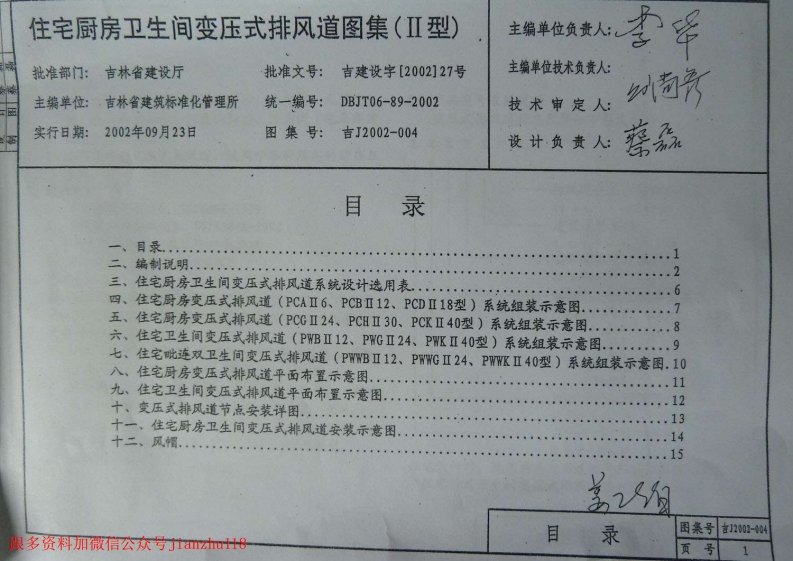 住宅厨房卫生间变压式排风道图集(Ⅱ型)
批准部门: 吉林省建设厅 批准文号: 吉建设字[2002]27号
主编单位: 吉林省建筑标准化管理所 统一编号: DBJT06-89-2002
实行日期: 2002年09月23日 图集号: 吉J2002-004
主编单位负责人: 李华
主编单位技术负责人:
技术审定人:
设计负责人: 蔡磊
目录
一、目录 1
二、编制说明 2
三、住宅厨房卫生间变压式排风道系统设计选用表 6
四、住宅厨房变压式排风道(PCAⅡ6、PCBⅡ12、PCDⅡ18型)系统组装示意图 7
五、住宅厨房变压式排风道(PCGⅡ24、PCHⅡ30、PCKⅡ40型)系统组装示意图 8
六、住宅卫生间变压式排风道(PWBⅡ12、PWGⅡ24、PWKⅡ40型)系统组装示意图 9
七、住宅毗连双卫生间变压式排风道(PWWBⅡ12、PWWGⅡ24、PWWKⅡ40型)系统组装示意图 10
八、住宅厨房变压式排风道平面布置示意图 11
九、住宅卫生间变压式排风道平面布置示意图 12
十、变压式排风道节点安装详图 13
十一、住宅厨房卫生间变压式排风道安装示意图 14
十二、风帽 15
目录 图集号 吉J2002-004
页号 1
跟多资料加微信公众号jianzhu118